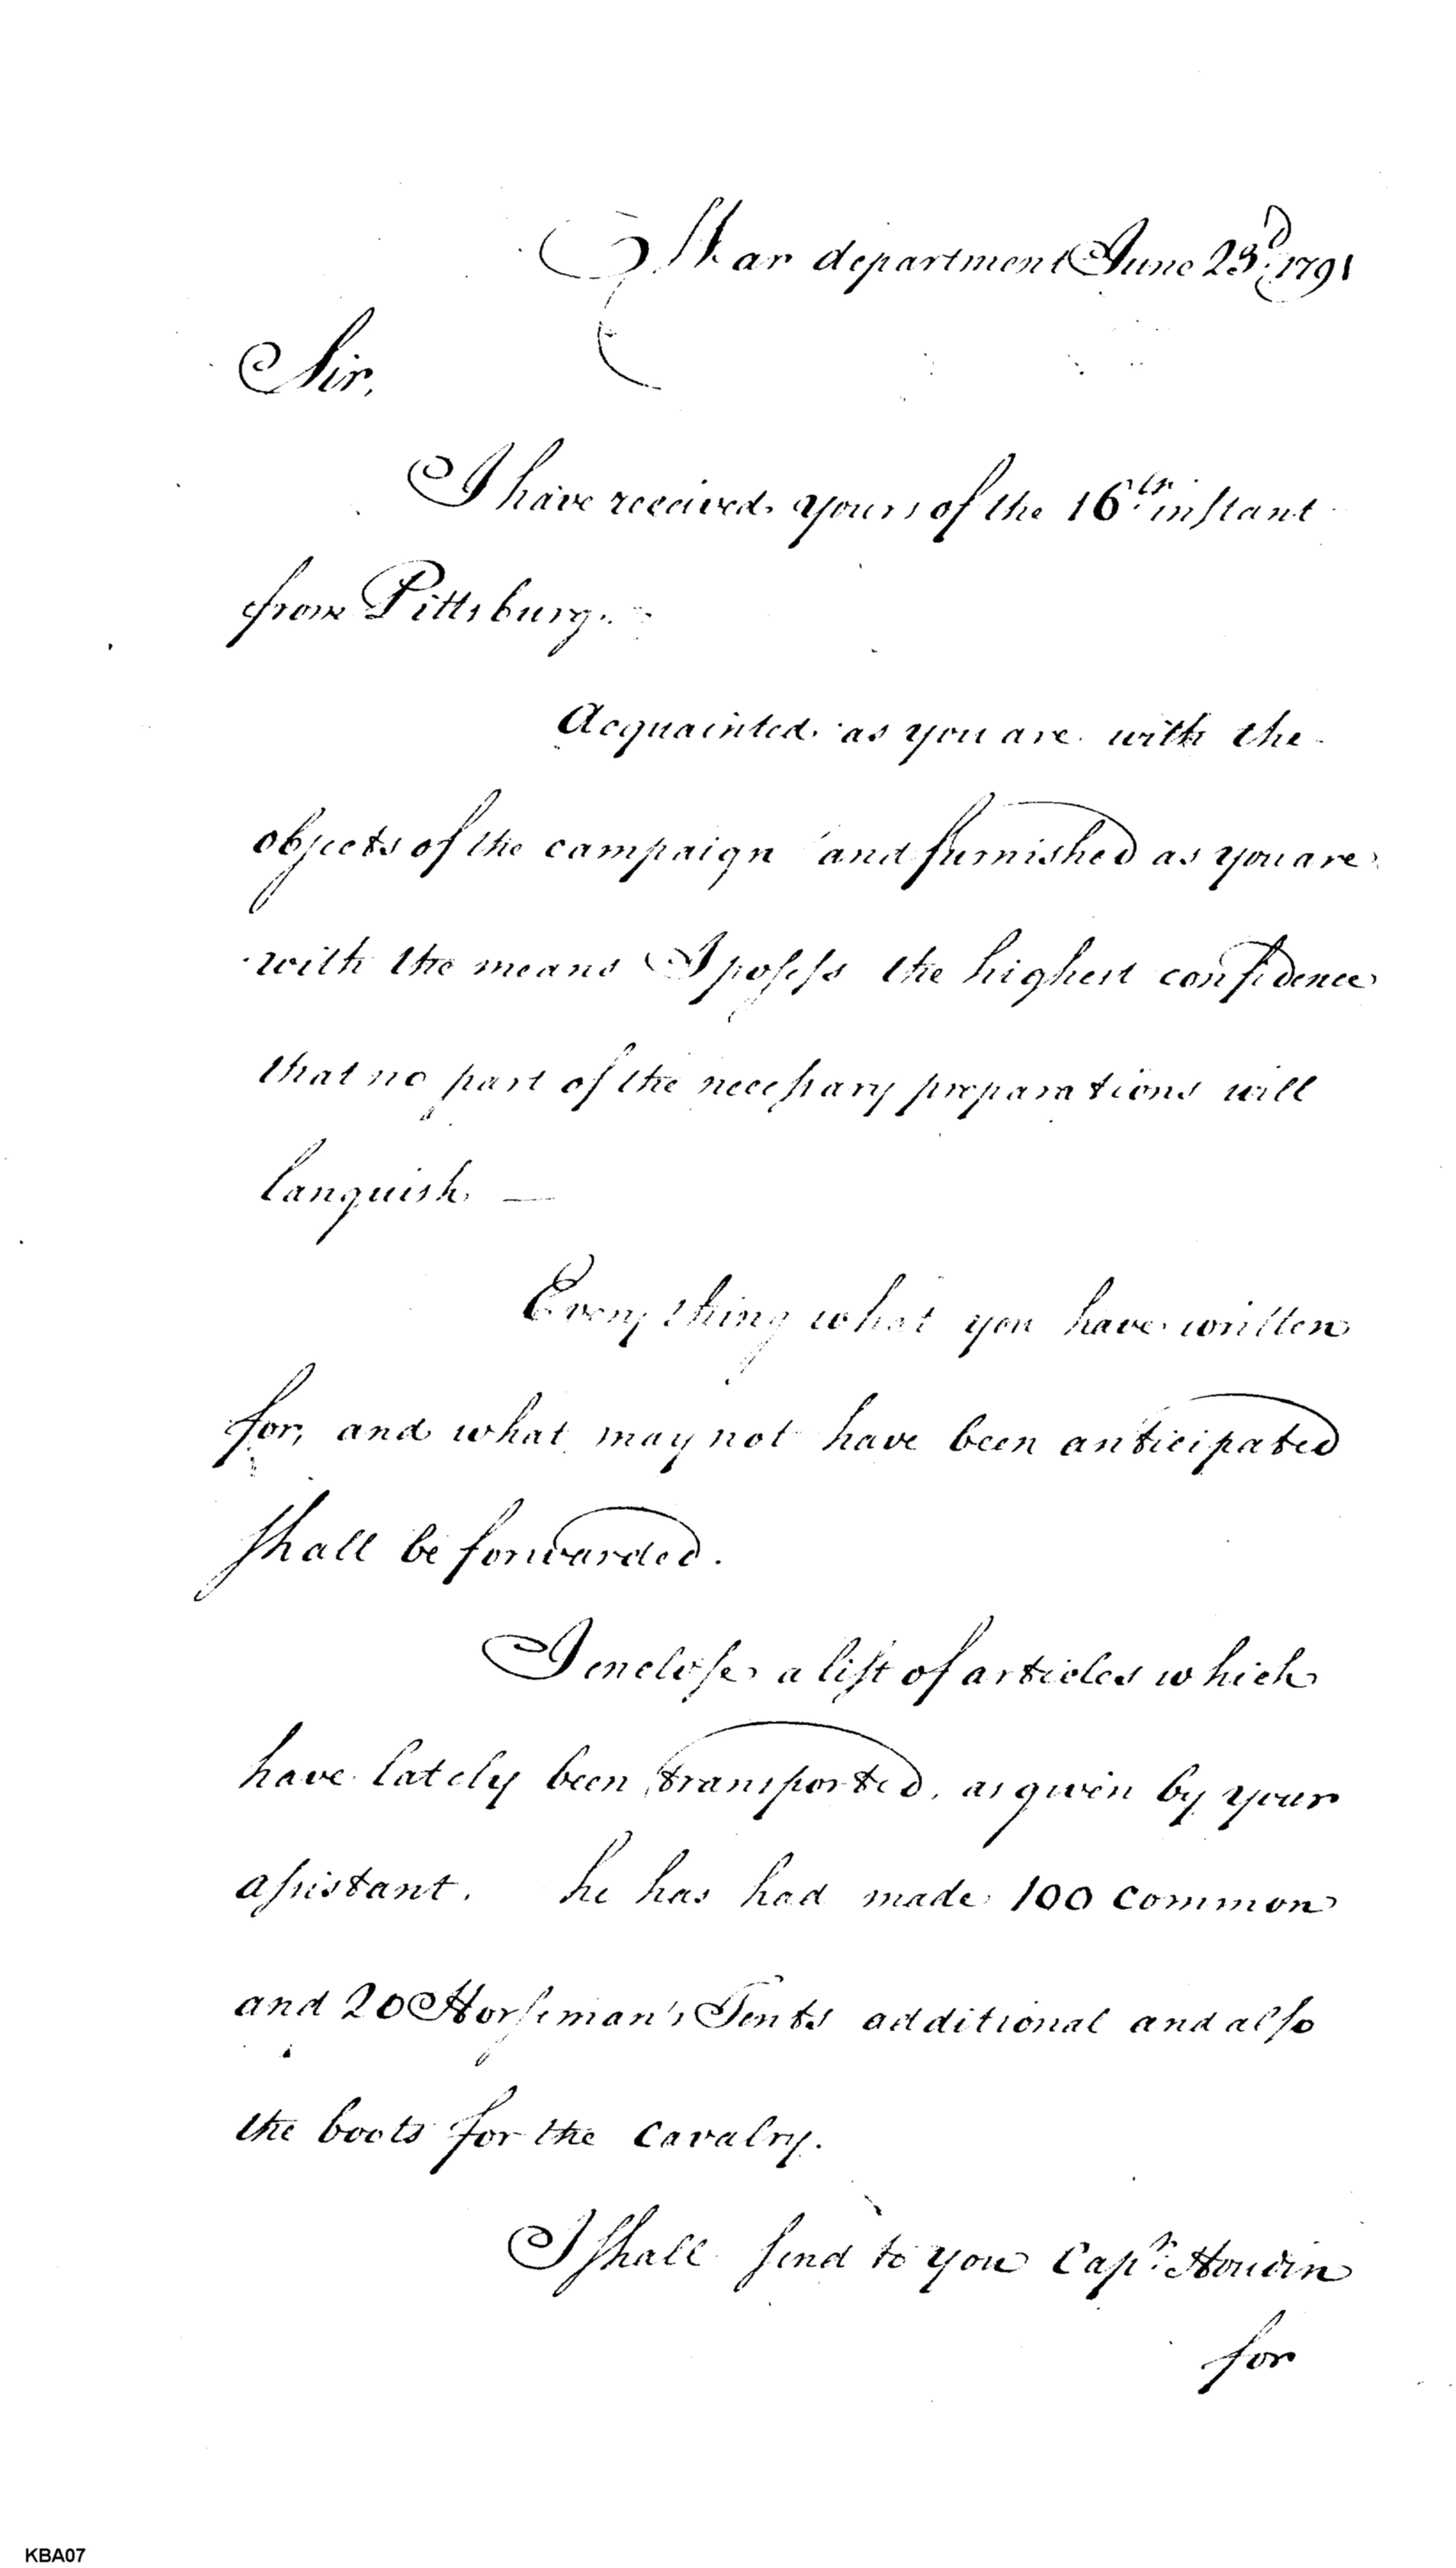 War department June 23d. 1791
Sir,
I have received yours of the 16th. instant
from Pittsburg.
Acquainted as you are with the
objects of the campaign and furnished as you are
with the means I possess the highest confidence
that no part of the necessary preparations will
languish —
Every thing what you have written
for, and what may not have been anticipated
shall be forwarded.
I enclose a list of articles which
have lately been transported, as given by your
assistant. he has had made 100 common
and 20 Horseman's Tents additional and also
the boots for the cavalry.
I shall send to you Capn. Houdin
for
KBA07